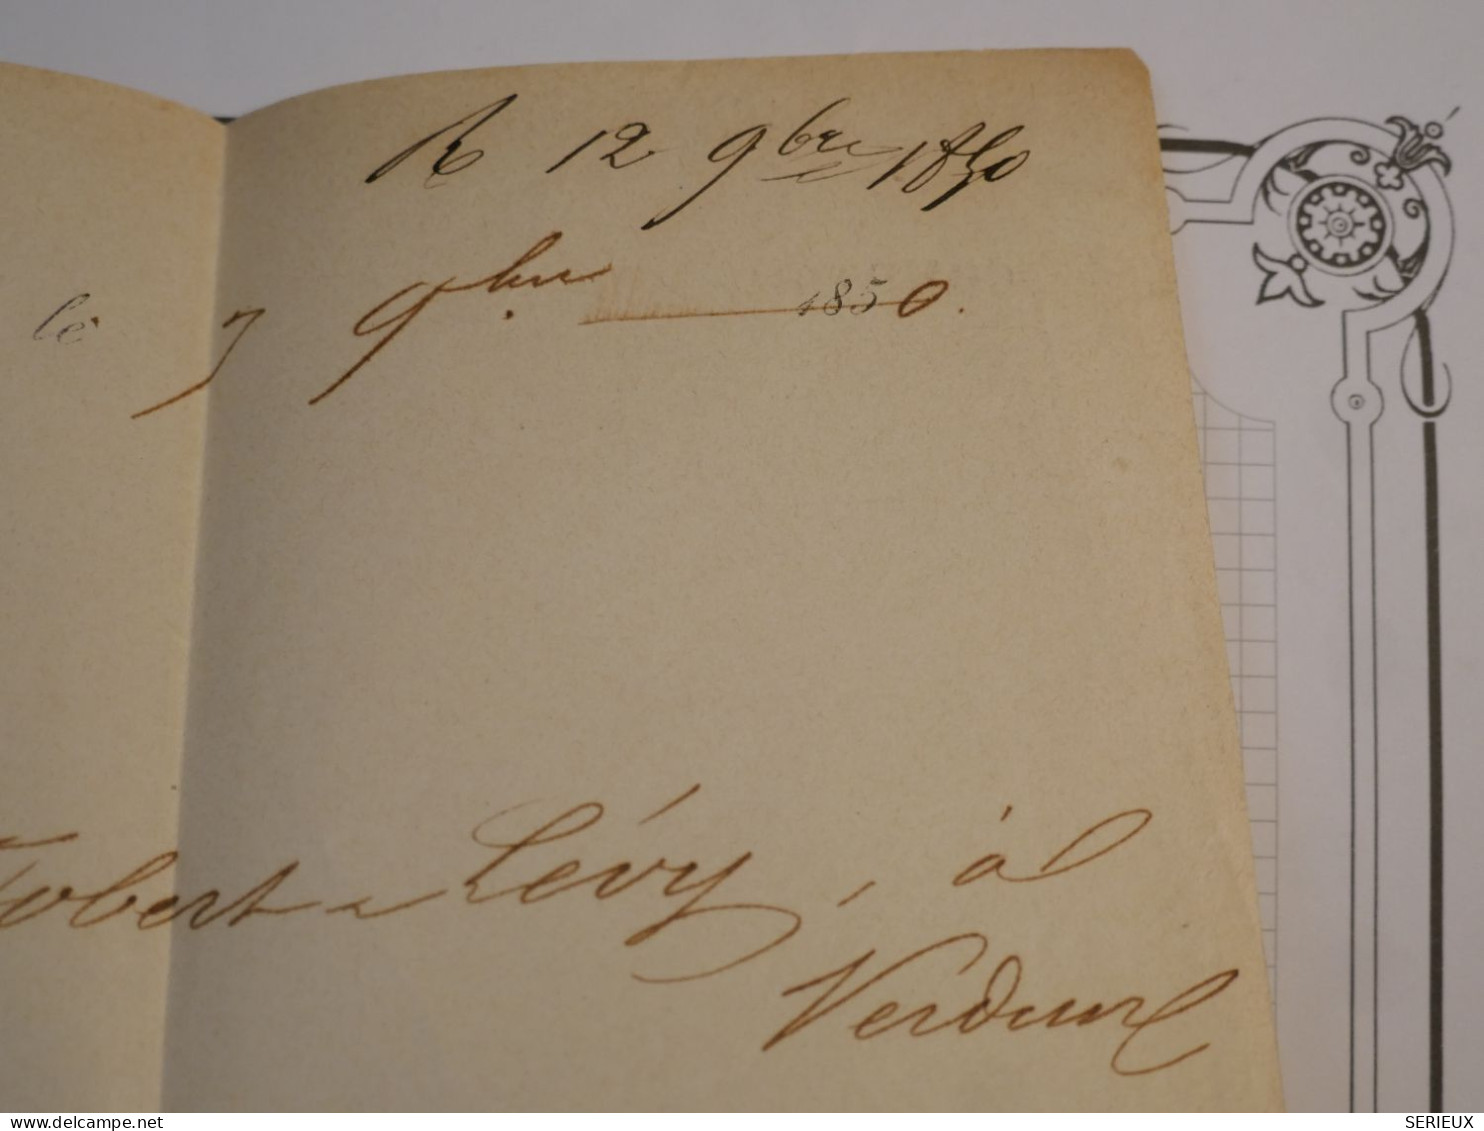 R 12 9bre 1850
le 7 9bre 1850.
Lévy, à
Verdun
www.delcampe.net
SERIEUX